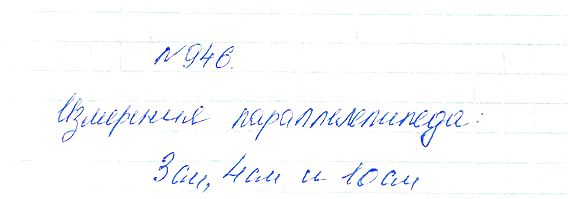 №946.
Измерения параллелепипеда:
3см, 4см и 10см